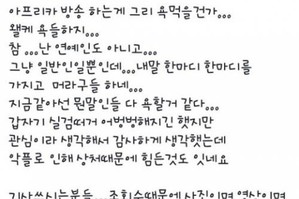 아프리카 방송 하는게 그리 욕먹을건가...
왤케 욕들하지,,,
참 ...난 연예인도 아니고...
그냥 일반인일뿐인데...내말 한마디 한마디를
가지고 머라구들 하네...
지금같아선 뭔말인들 다 욕할거 같다...
갑자기 실검떠거 어벙벙해지긴 햇지만
관심이라 생각해서 감사하게 생각했는데
악플로 인해 상처때문에 힘든것도 잇네요
기사쓰시는분들...조회수때문에 사진이며 영상이며